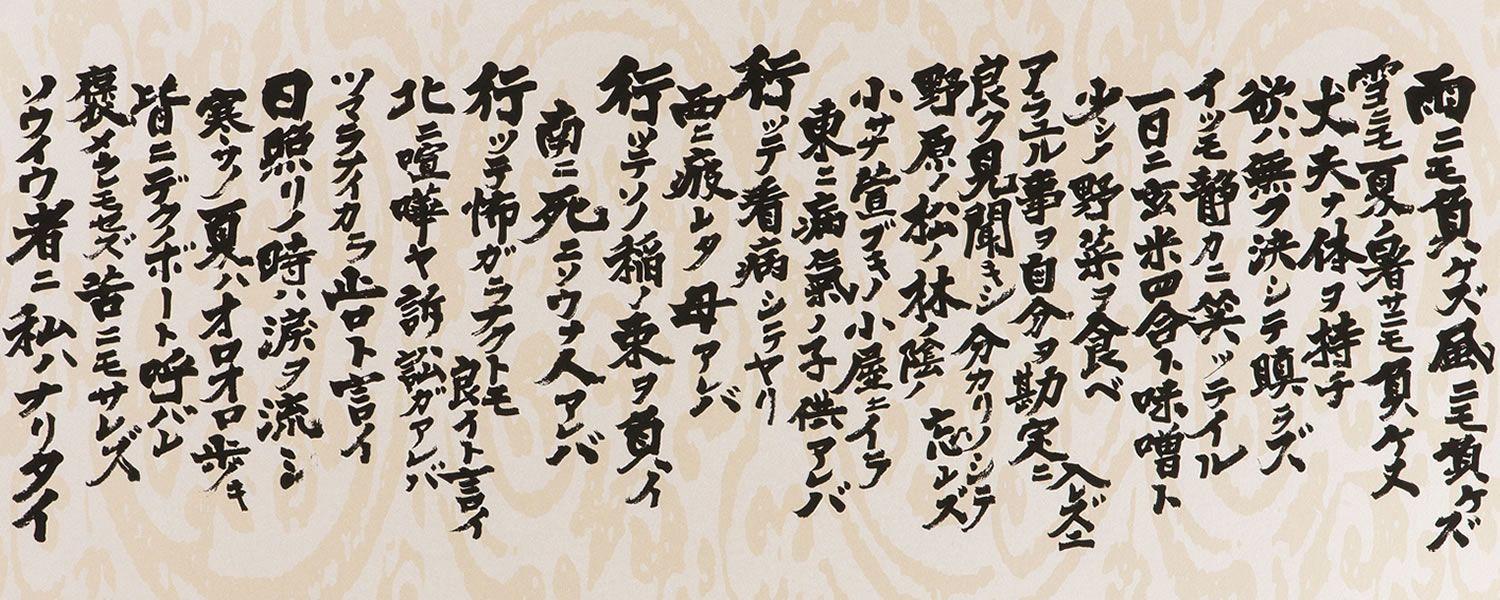 雨ニモ負ケズ風ニモ負ケズ
雪ニモ夏ノ暑サニモ負ケヌ
丈夫ナ体ヲ持チ
欲ハ無ク決シテ瞋ラズ
イツモ静カニ笑ッテイル
一日ニ玄米四合ト味噌ト
少シノ野菜ヲ食ベ
アラユル事ヲ自分ヲ勘定ニ入レズニ
良ク見聞キシ分カリソシテ忘レズ
野原ノ松ノ林ノ陰ノ
小サナ萱ブキノ小屋ニイテ
東ニ病気ノ子供アレバ
行ッテ看病シテヤリ
西ニ疲レタ母アレバ
行ッテソノ稲ノ束ヲ負イ
南ニ死ニソウナ人アレバ
行ッテ怖ガラナクトモ良イト言イ
北ニ喧嘩ヤ訴訟ガアレバ
ツマラナイカラ止ロト言イ
日照リノ時ハ涙ヲ流シ
寒サノ夏ハオロオロ歩キ
皆ニデクボート呼バレ
褒メラレモセズ苦ニモサレズ
ソウイウ者ニ私ハナリタイ